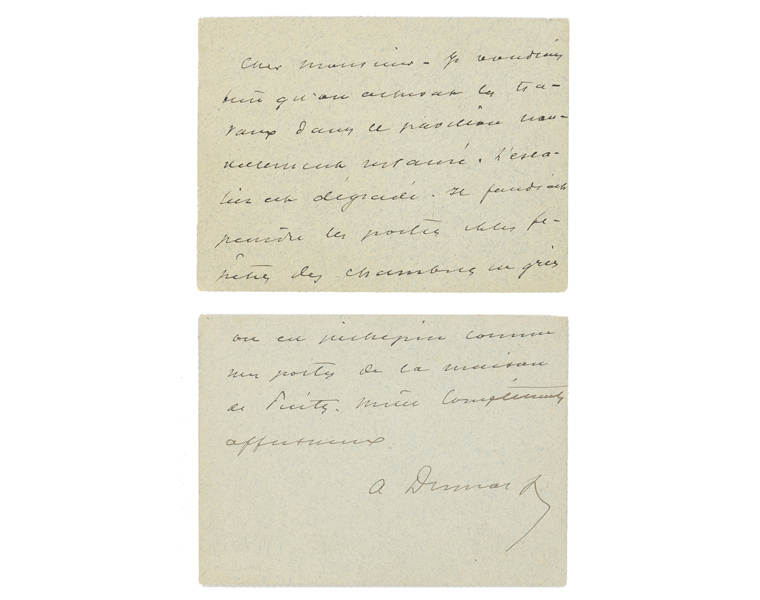 Cher Monsieur - Je voudrais
bien qu'on achevat les tra-
vaux dans le pavillon nou-
vellement restauré. L'esca-
lier est dégradé. Il faudrait
peindre les portes et les fe-
nêtres des chambres en gris
ou en pichepin comme
les portes de la maison
de Puits. Mille Compliments
affectueux
A Dumas f